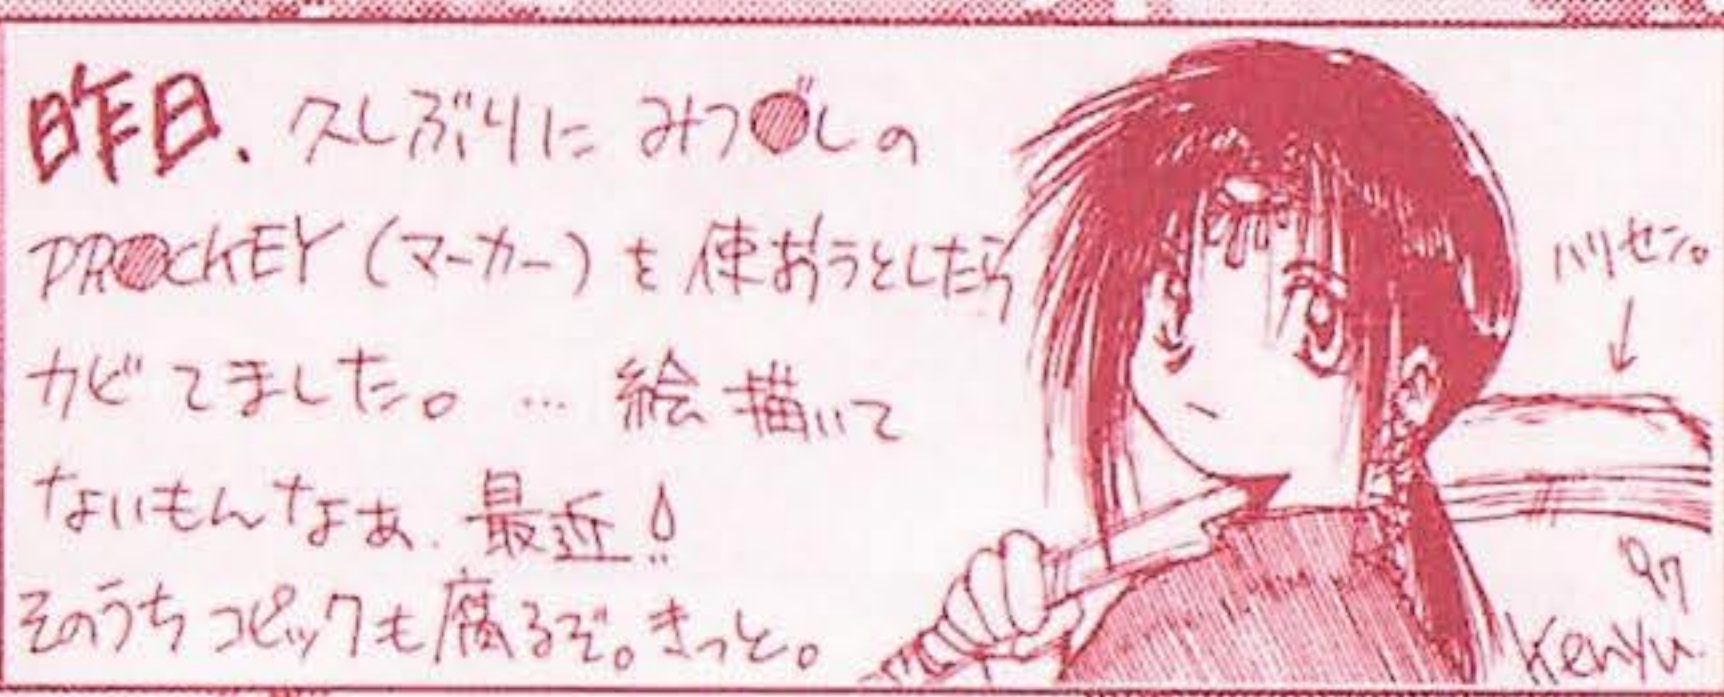 昨日、久しぶりに みつ●゛しの
PR●CKEY (マーカー) を 使おうとしたら
カビてました。… 絵描いて
ないもんなぁ、最近!
そのうちコピックも腐るぞ。きっと。
ハリセン。
'97
Kenyu.